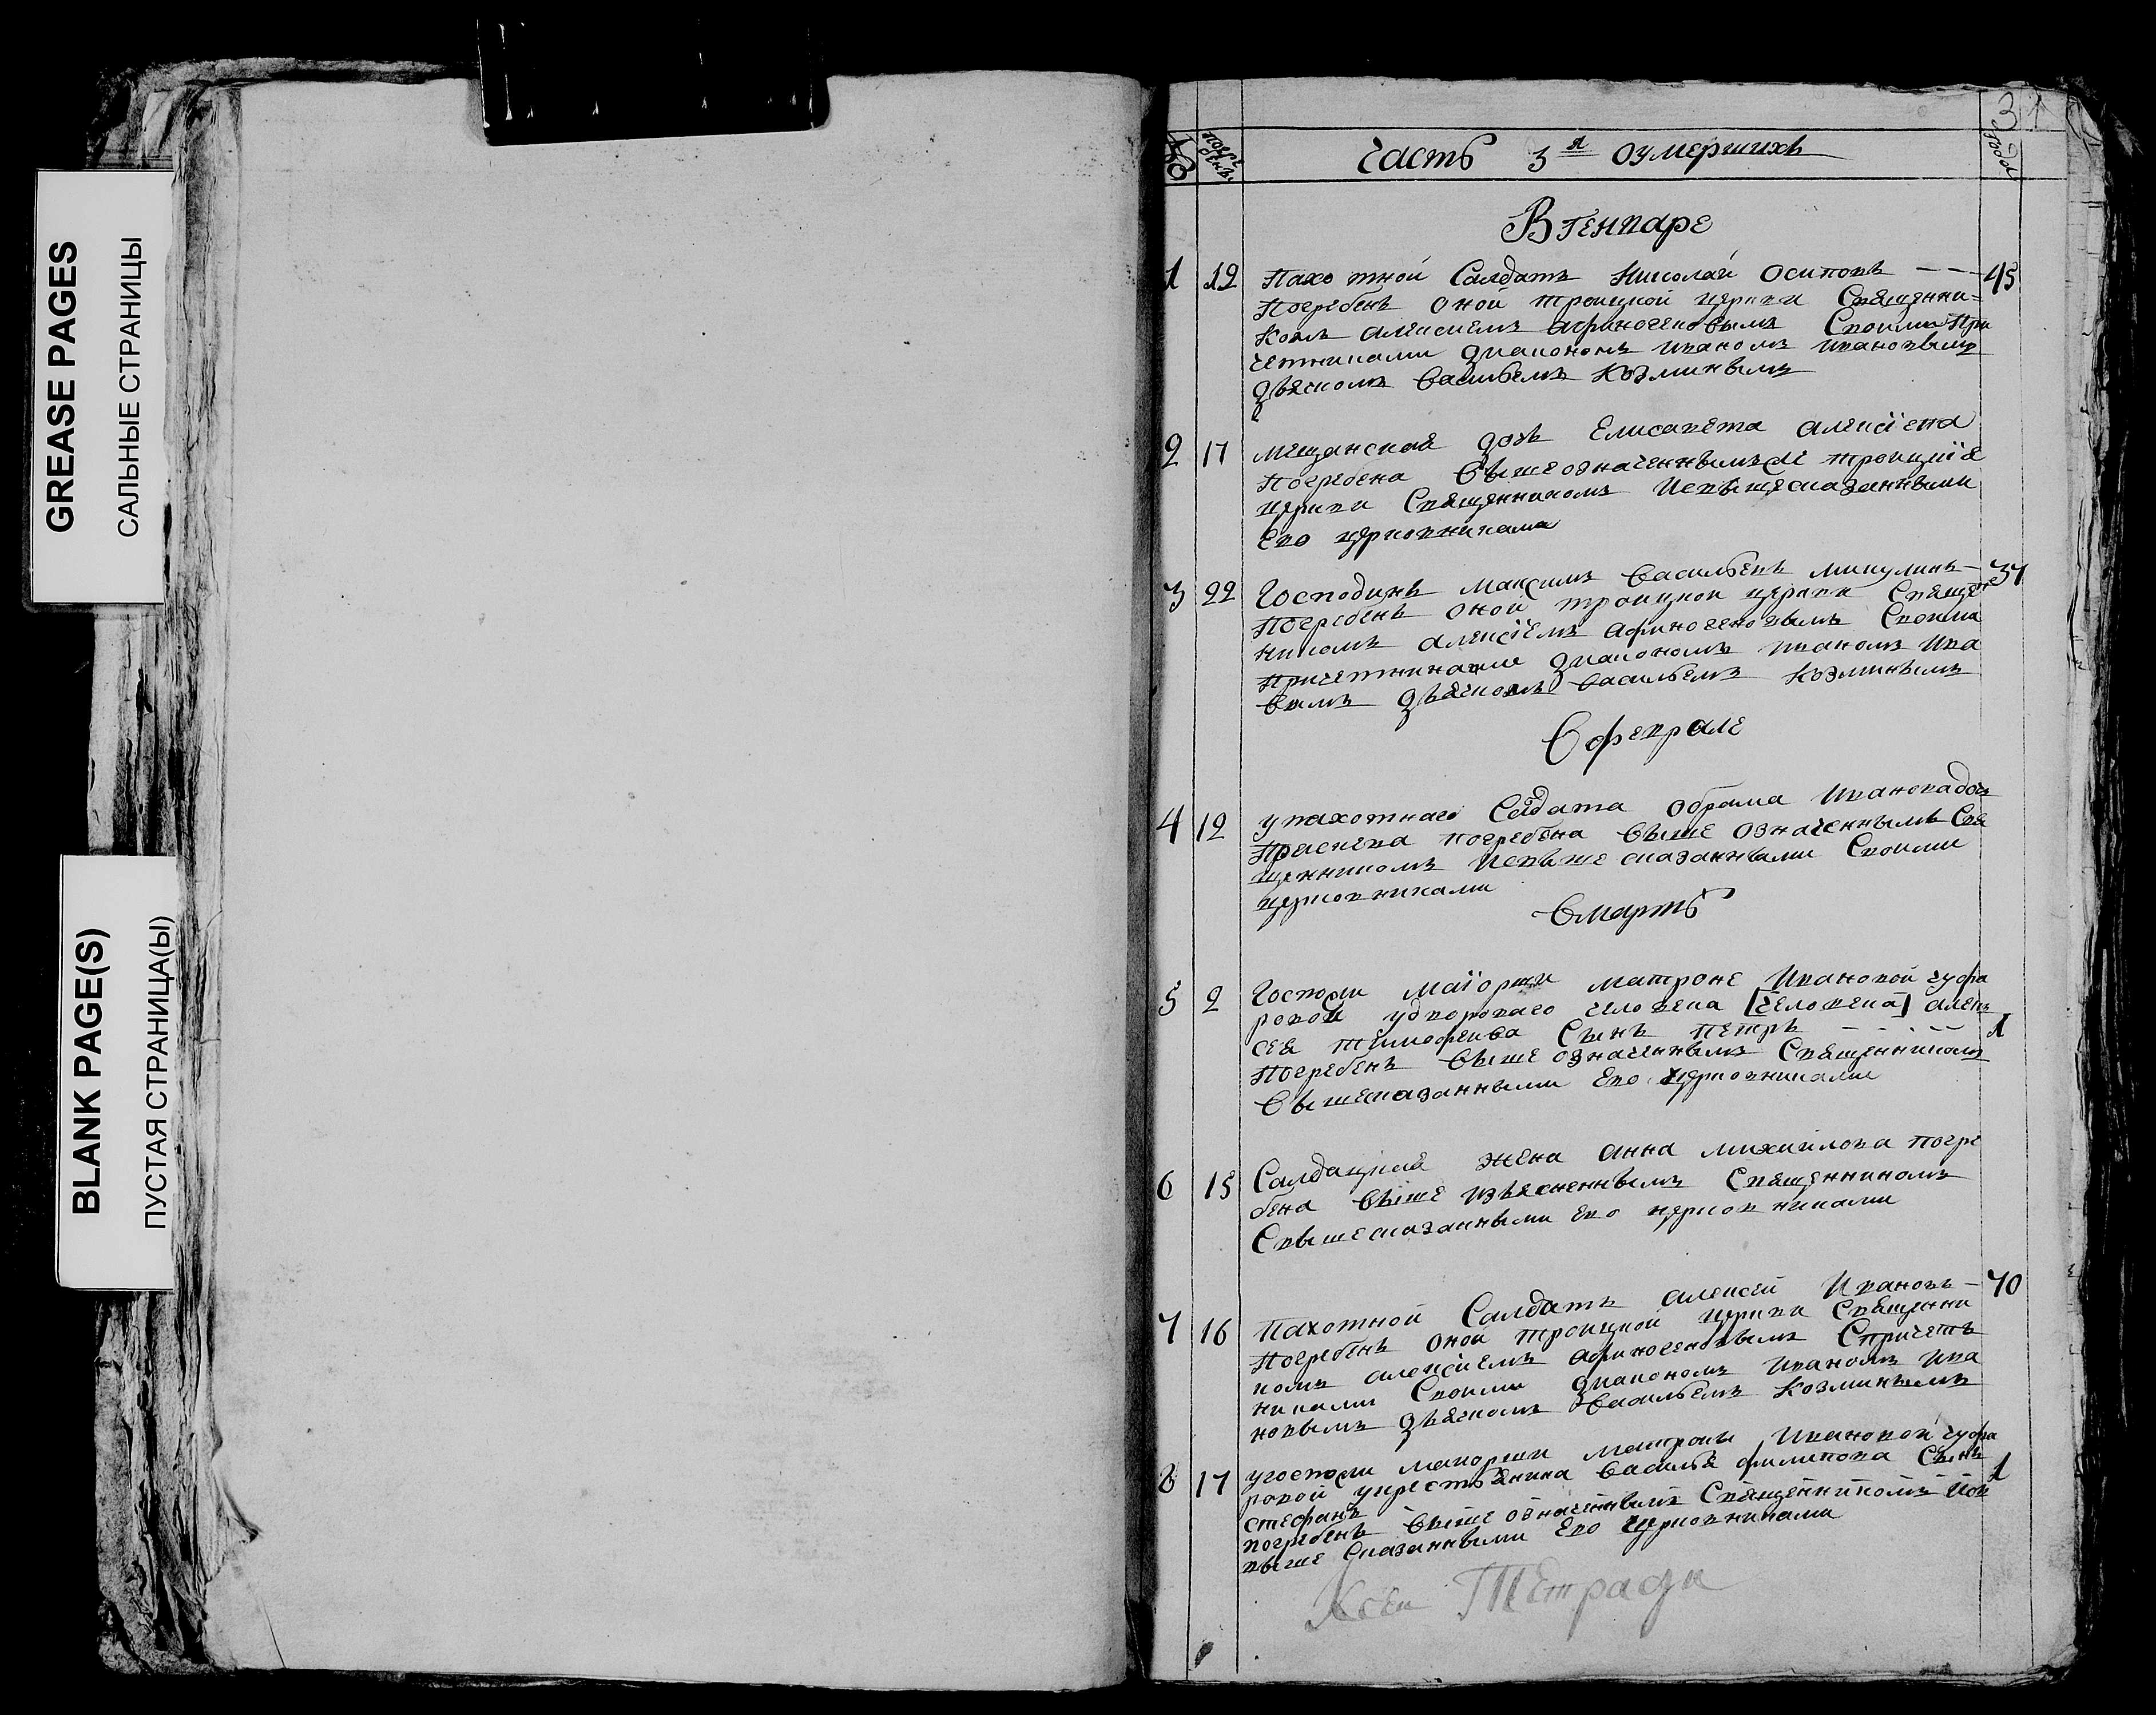 GREASE PAGES
САЛЬНЫЕ СТРАНИЦЫ
BLANK PAGE(S)
ПУСТАЯ СТРАНИЦА(Ы)
31
№ погре бенъ часть 3я оумершихъ годовъ
Вгенваре
1 12 пахотной Салдатъ Николай Осиповъ --- 45
погребенъ оной троицкой церкви Священни=
комъ алексиемъ афиногеновымъ Своими При
четниками диакономъ иваномъ ивановымъ
дьячкомъ василъемъ козминымъ
2 17 мещанская дочь Елисавета алексiева
погребена вышеозначеннымъ троицкiя
церкви Священникомъ исвышесказанными
Ево церковниками
3 22 Господинъ максимъ василъевъ микулинъ- 37
погребенъ оной троицкой церкви Свяще
никомъ алексiемъ афиногеновымъ Своими
причетниками диакономъ иваномъ ива
вымъ дьячкомъ василъемъ козминымъ
Вфеврале
4 12 упахотнаго Салдата обрама ивановадочь
праскева погребена выше означеннымъ Свя
щенникомъ исвыше сказанными Своими
церковниками
Вмартъ
5 2 Госпожи маiорши матроне ивановой чуфа
ровой удвороваго человека [человека] алек
сея тимофеева Сынъ петръ ---- 1
погребенъ выше означеннымъ Священникомъ
Свышесказанными Ево церковниками
6 15 Салдацкая жена анна михаилова погре
бена выше изъясненнымъ Священникомъ
Свышесказанными Ево церковниками
7 16 пахотной Салдатъ алексей ивановъ- 70
погребенъ оной троицкой церкви Священни
комъ алексiемъ афиногеновымъ Спричет
никами Своими диакономъ иваномъ ива
новымъ дьячкомъ василъемъ козминымъ
8 17 угоспожи маиорши матроны ивановой чуфа
ровой укрестьянина василья филипова Сынъ 1
стефанъ
погребенъ выше означеннымъ Священникомъ исв
выше Сказанными Ево церковниками
Ксеи Тетради